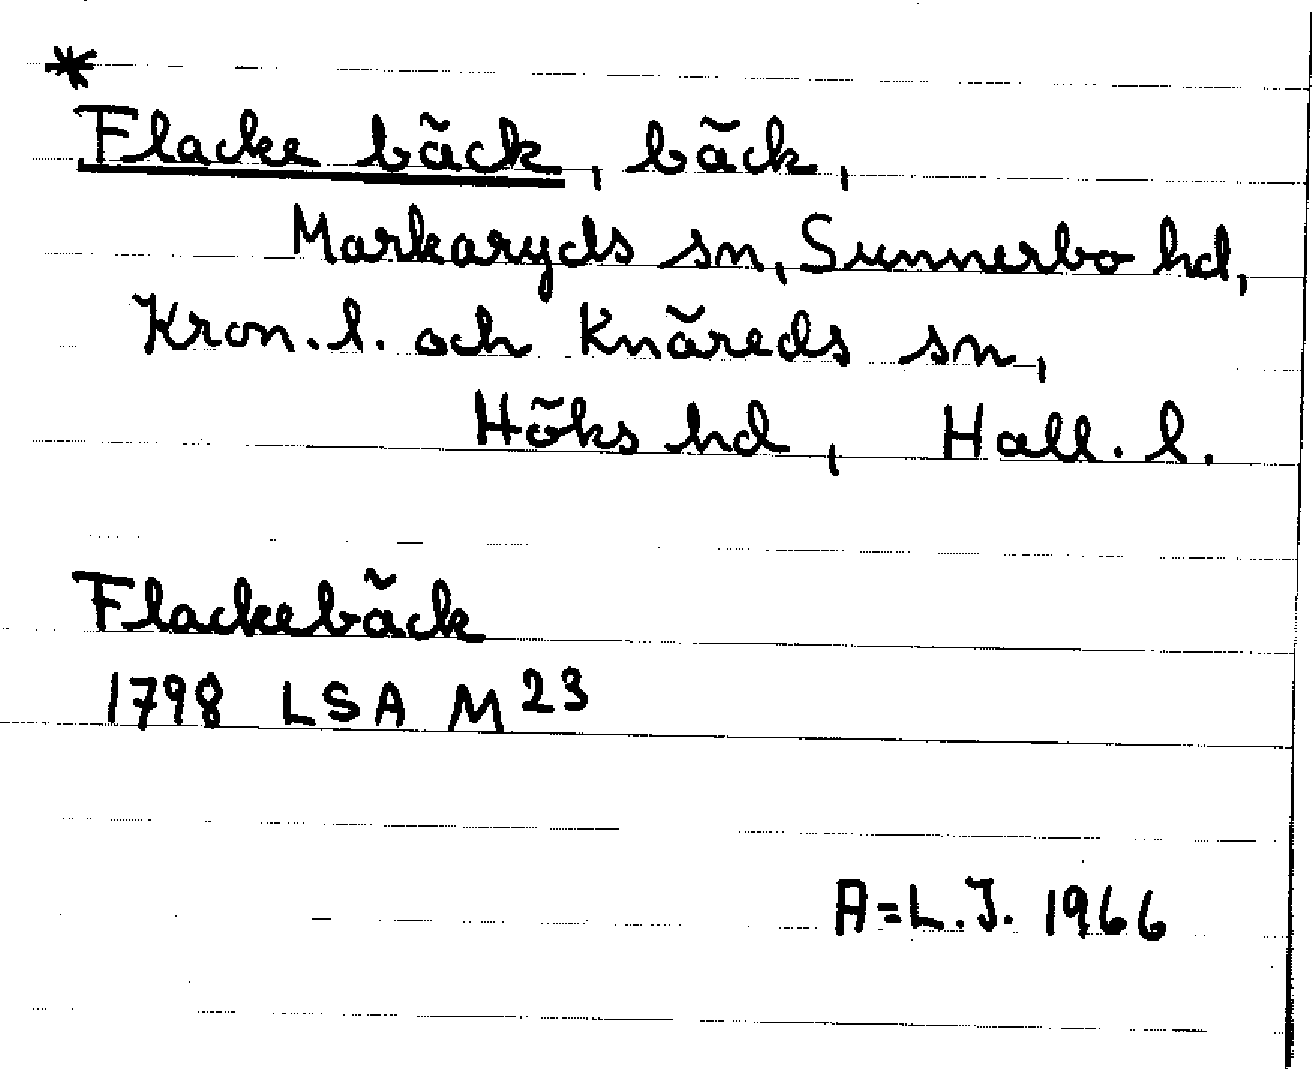 *
Flacke bäck, bäck,
Markaryds sn, Sunnerbo hd,
Kron. l. och Knäreds sn,
Höks hd, Hall. l.
Flackebäck
1798 LSA M 23
A=L.J. 1966